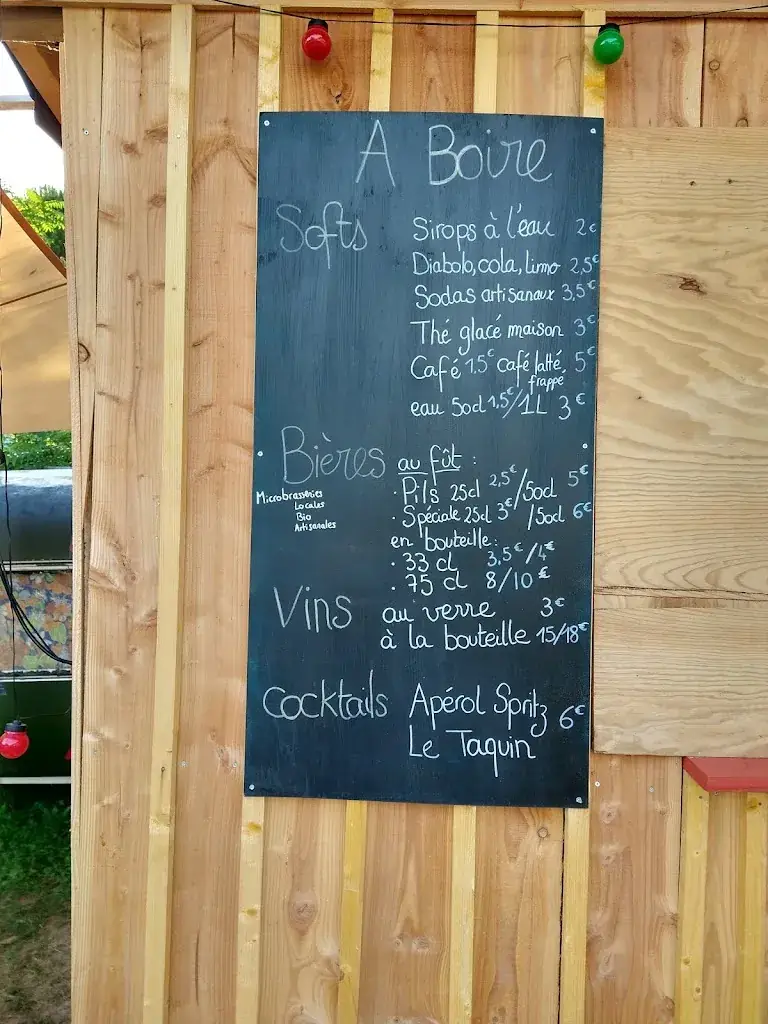 A Boire
Softs
Sirops à l'eau 2€
Diabolo, cola, limo 2,5€
Sodas artisanaux 3,5€
Thé glacé maison 3€
Café 1,5€ café latté, frappé 5€
eau 50cl 1,5€/1L 3€
Bières au fût :
Microbrasseries
Locales
Bio
Artisanales
· Pils 25cl 2,5€/50cl 5€
· Spéciale 25cl 3€/50cl 6€
en bouteille :
· 33 cl 3,5€/4€
· 75 cl 8/10€
Vins au verre 3€
à la bouteille 15/18€
Cocktails Apérol Spritz 6€
Le Taquin